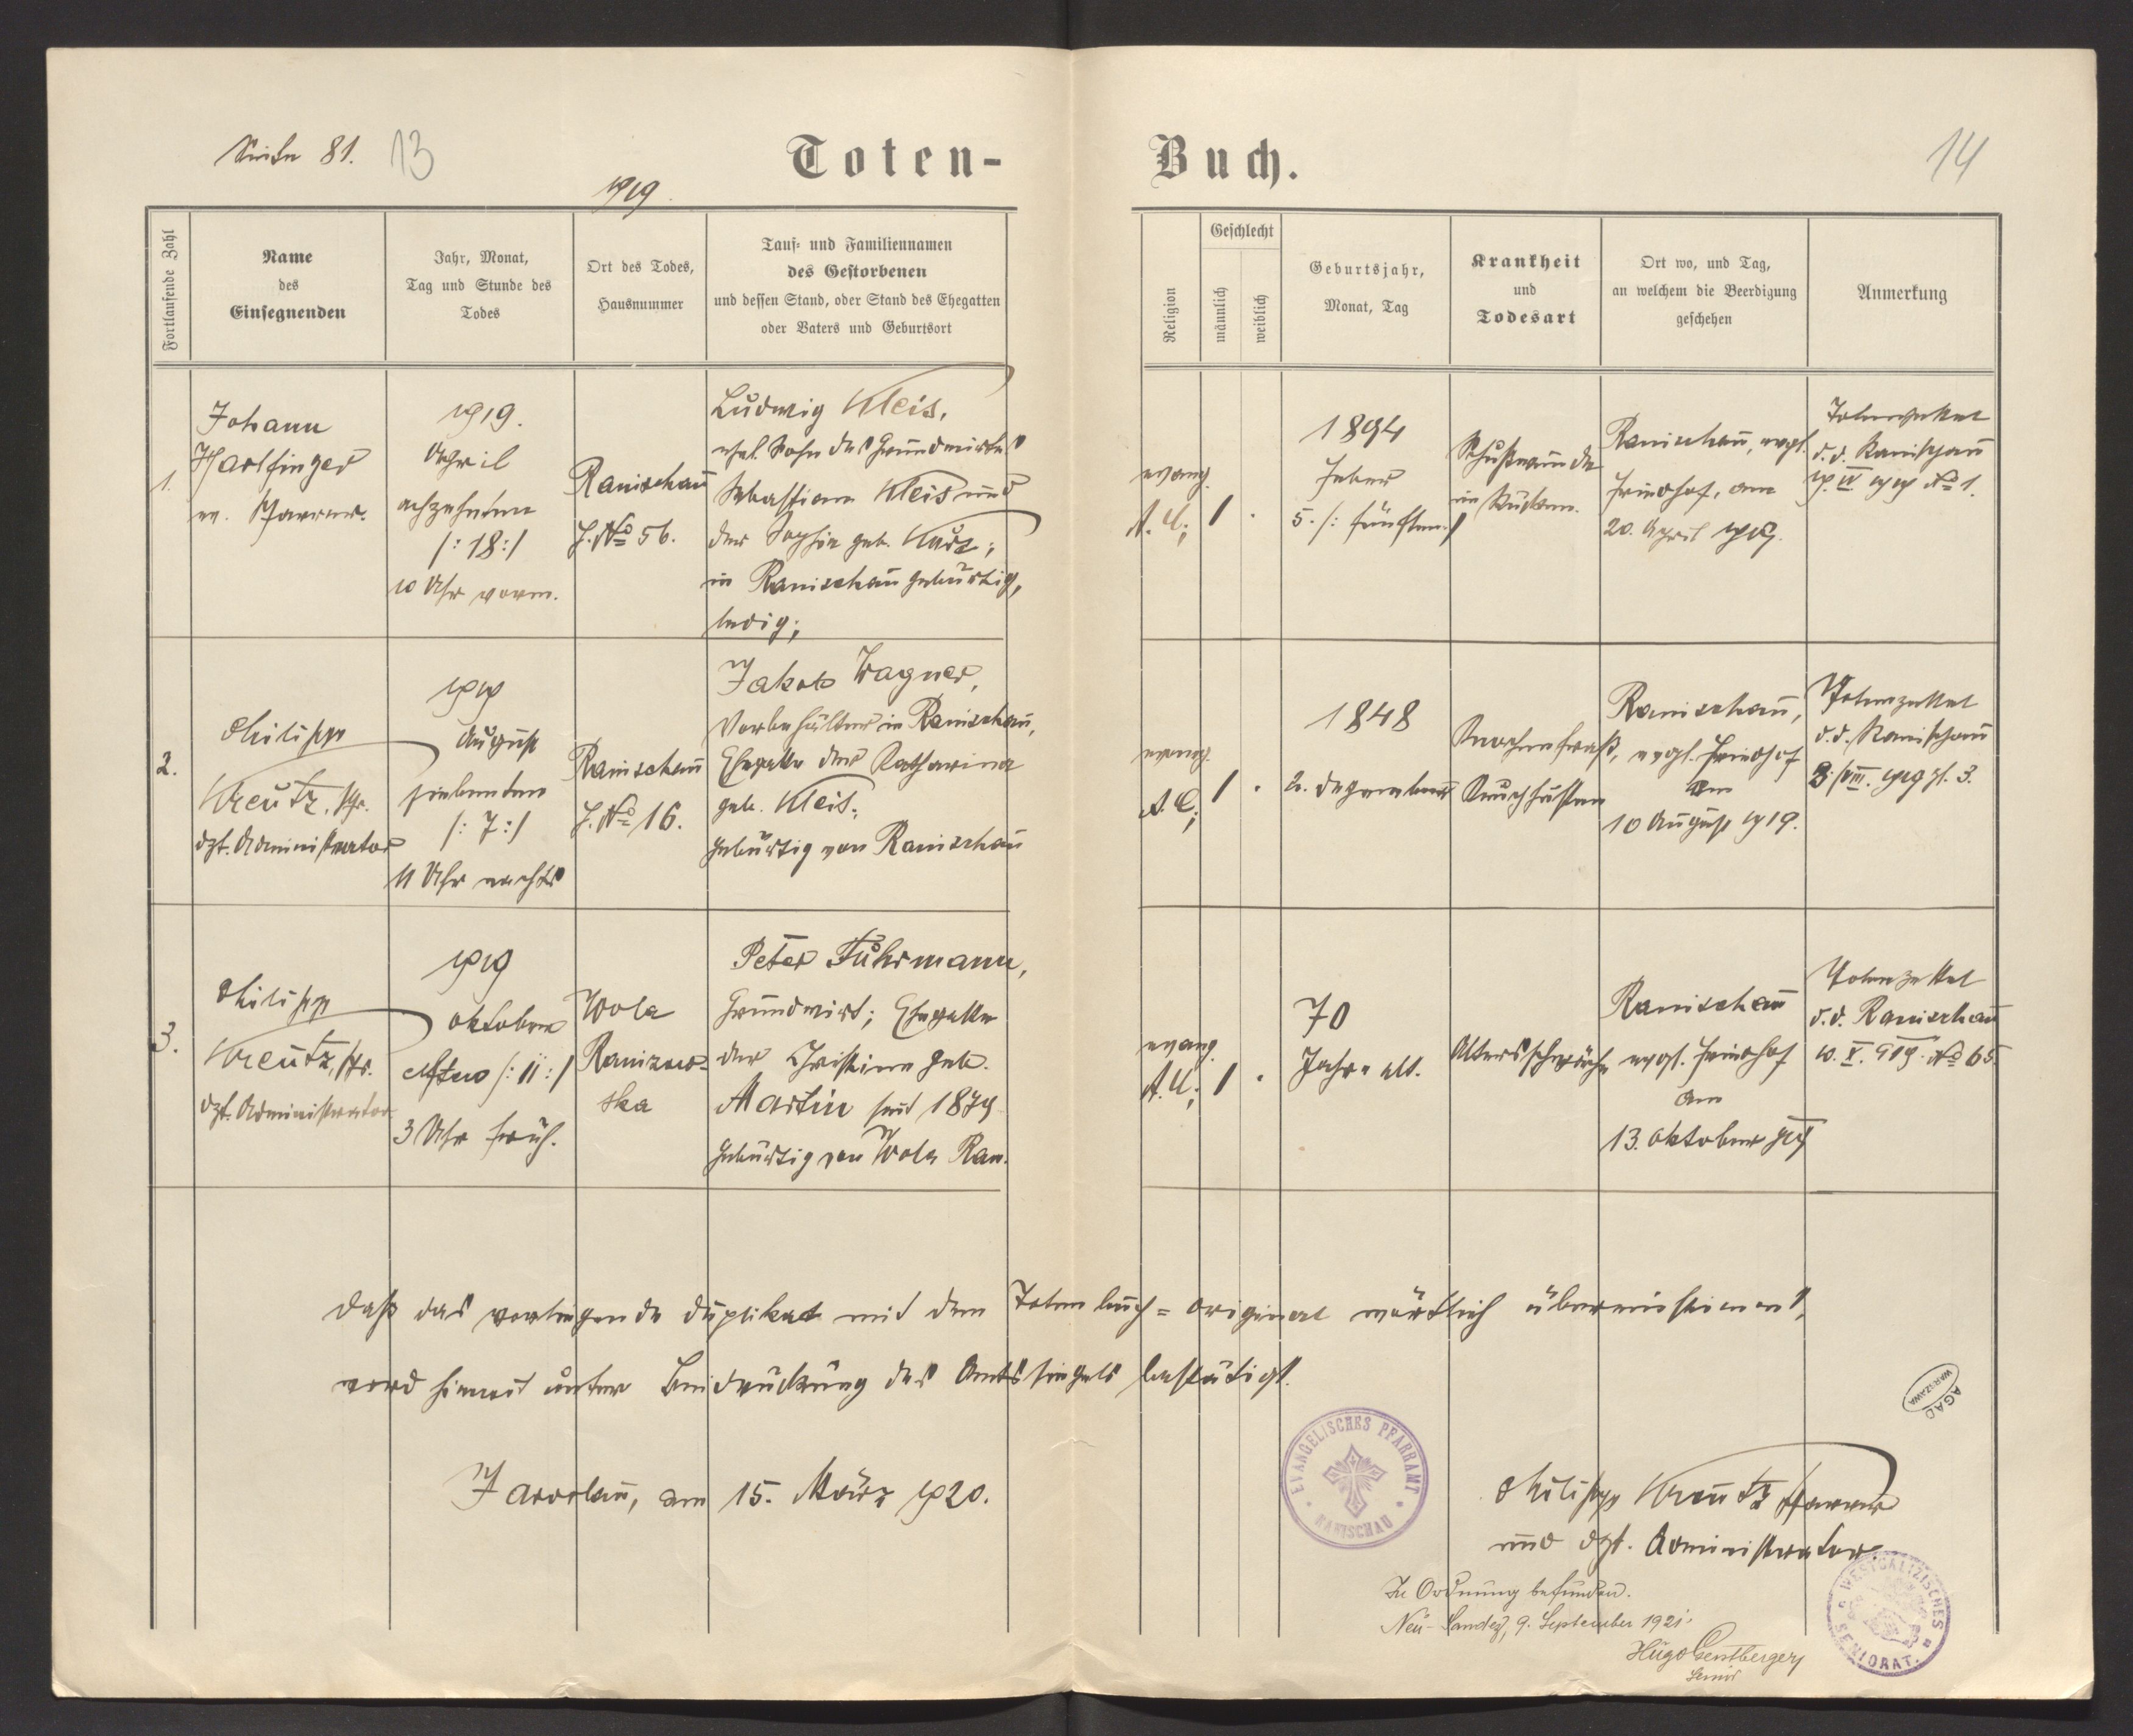 Seite 81.
13
Toten-
Buch.
14
1919.
Fortlaufende Zahl
Name
des
Einsegnenden
Jahr, Monat,
Tag und Stunde des
Todes
Ort des Todes,
Hausnummer
Tauf- und Familiennamen
des Gestorbenen
und dessen Stand, oder Stand des Ehegatten
oder Vaters und Geburtsort
Religion
Geschlecht
männlich
weiblich
Geburtsjahr,
Monat, Tag
Krankheit
und
Todesart
Ort wo, und Tag,
an welchem die Beerdigung
geschehen
Anmerkung
1.
Johann
Harlfinger
ev. Pfarrer.
1919.
April
achzehnten
/: 18 :/
10 Uhr vorm.
Ranischau
H. No 56.
Ludwig Kleis,
ehel. Sohn des Grundwirtes
Sebastian Kleis und
der Sophie geb. Kurz;
in Ranischau gebürtig,
ledig;
evang.
A. C;
1
.
1894
Feber
5. /: fünften :/
Schußwunde
im Rücken.
Ranischau, evgl.
Friedhof, am
20. April 1919.
Totenzettel
d. d. Ranischau
19. IV 1919 No 1.
2.
Philipp
Kreutz, Pfr.
dzt. Administrator
1919
August
siebenten
/: 7 :/
11 Uhr nachts
Ranischau
H. No 16.
Jakob Wagner,
Vorbehälter in Ranischau,
Ehegatte der Katharina
geb. Kleis;
gebürtig von Ranischau
evang.
A. C;
1
.
1848
2. Dezember
Knochenfraß,
Ranischau,
evgl. Friedhof
am
10 August 1919.
Totenzettel
d. d. Ranischau
8. VIII. 1919 zl. 3.
3.
Philipp
Kreutz, Pfr.
dzt. Administrator
1919
Oktober
elften /: 11 :/
3 Uhr früh.
Wola
Ranizow-
ska
Peter Fuhrmann,
Grundwirt; Ehegatte
der Christine geb.
Martin seit 1879
gebürtig von Wola Ran.
evang.
A. C;
1
.
70
Jahre alt.
Altersschwäche
Ranischau
evgl. Friedhof
am
13. Oktober 919
Totenzettel
d. d. Ranischau
10. X. 919. No 65.
Daß das vorliegende Duplikat mit dem Totenbuch-Original wörtlich übereinstimmt,
wird hiemit unter Beidrückung des Amtssiegels bestätigt.
Jaroslau, am 15. März 1920.
EVANGELISCHES PFARRAMT
RANISCHAU
AGAD
WARSZAWA
Philipp Kreutz Pfarrer
und dzt. Administrator.
In Ordnung befunden.
Neu-Sandez, 9. September 1921.
Hugo
Senior
WESTGALIZISCHES
SENIORAT.